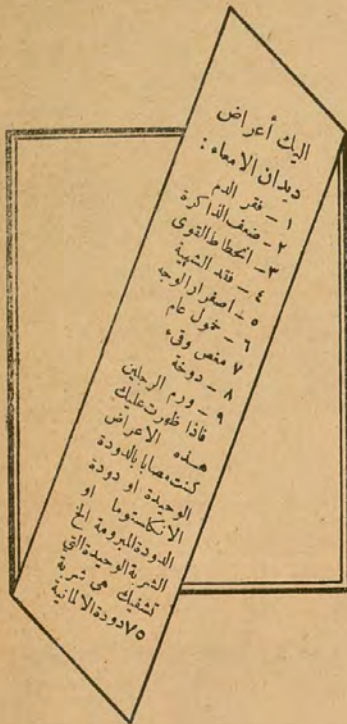 اليك أعراض
ديدان الامعاء :
١ - فقر الدم
٢ - ضعف الذاكرة
٣ - انحطاط القوى
٤ - فقد الشهية
٥ - اصفرار الوجه
٦ - خمول عام
٧ مغص وقىء
٨ - دوخة
٩ - ورم الرجلين
فاذا ظهرت عليك
هذه الاعراض
كنت مصابا بالدودة
الوحيدة او دودة
الانكلستوما او
الدودة المبرومة الخ
الشربة الوحيدة التي
تشفيك هى شربة
٧٥ دودة الالمانية